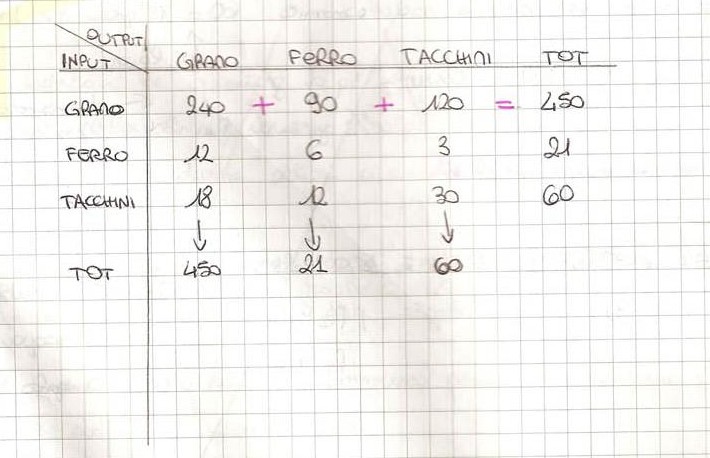 OUTPUT
INPUT GRANO FERRO TACCHINI TOT
GRANO 240 + 90 + 120 = 450
FERRO 12 6 3 21
TACCHINI 18 12 30 60
↓ ↓ ↓
TOT 450 21 60